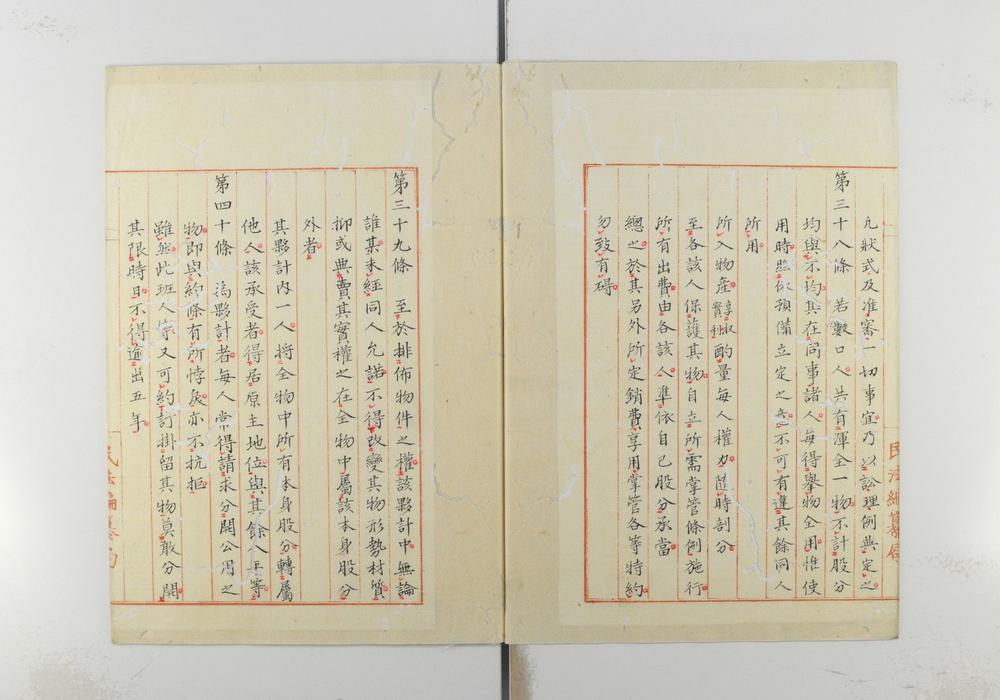 凢狀式及准審一切事宜乃以訟理例典定之
第三十八條　若數口人共有渾全一物不計股分
均與不均其在同事諸人每得舉物全用惟使
用時照依預備立定之意不可有違其餘同人
所用
所入物產享收實利酌量每人權力隨時剖分
至各該人保護其物自立所需掌管條例施行
所有出費由各該人準依自己股分承當
總之於其另外所定銷費享用掌管各等特約
勿致有礙
第三十九條　至於排佈物件之權該夥計中無論
誰某未經同人允諾不得改變其物形勢材質
抑或典賣其實權之在全物中屬該本身股分
外者
其夥計內一人將全物中所有本身股分轉屬
他人該承受者得居原主地位與其餘人平等
第四十條　為夥計者每人常得請求分開公用之
物即與約條有所悖戾亦不抗拒
雖然此班人等又可約訂掛留其物莫敢分開
其限時日不得逾出五年
民法編纂局